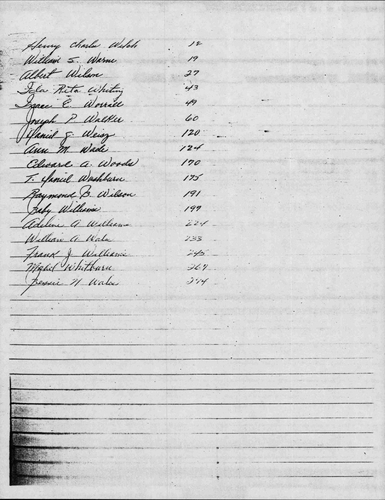 Henry Charles Welch 12
William S. Warne 19
Albert Wilson 27
Rita Whiting 43
Isaac E. Worrall 49
Joseph P. Walker 60
Daniel J. Weing 120
Ann M. Wade 124
Edward A. Woods 170
T. Daniel Washburn 175
Raymond B. Wilson 191
Baby Williams 197
Adeline A. Williams 224
William A. 233
Frank J. Williams 245
Whitburn 264
Bessie H.